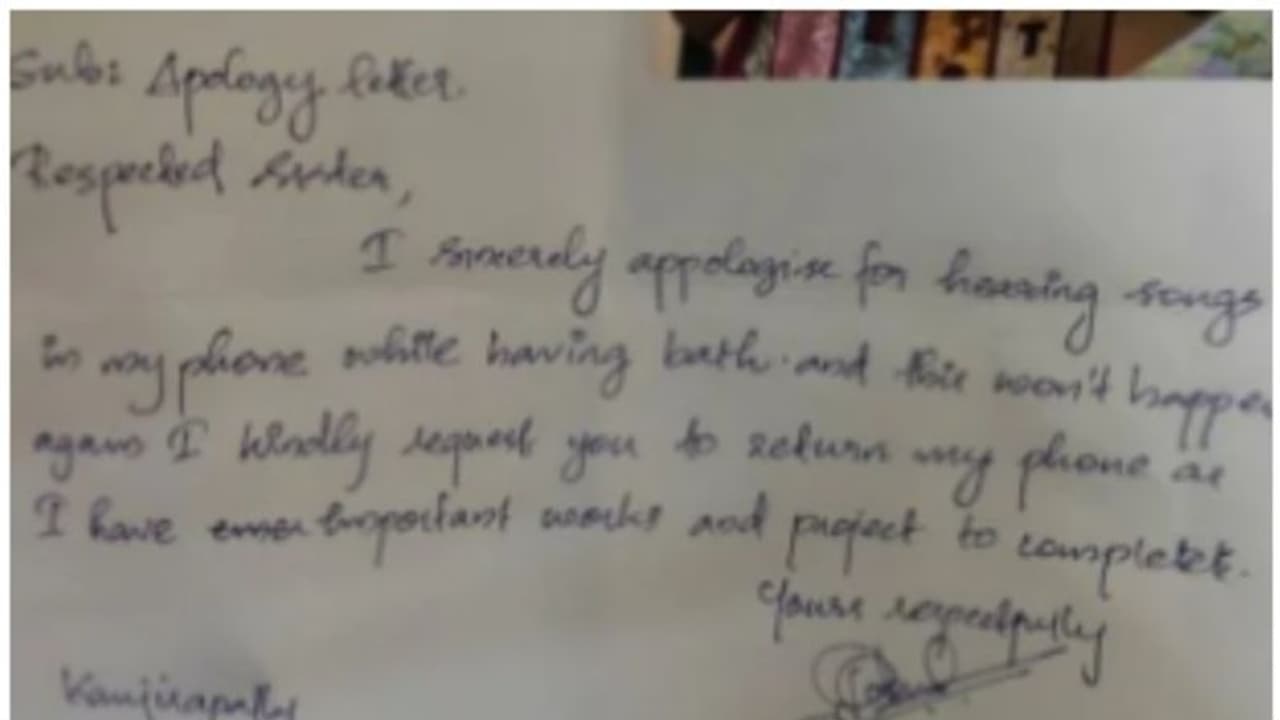 Sub: Apology letter.
Respected Sister,
I sincerely appologise for hearing songs
in my phone while having bath. and this won't happen
again I kindly request you to return my phone as
I have important works and project to complete.
Yours respectfully
Kanjirapally
T